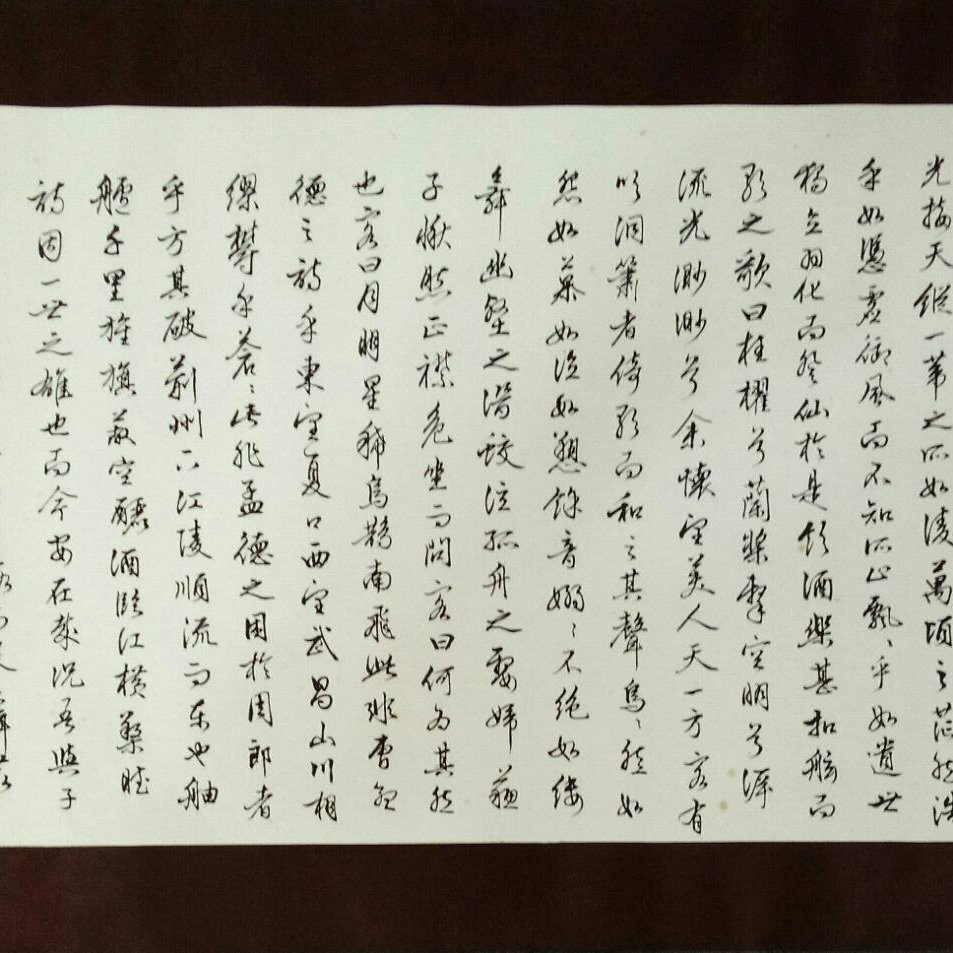 光接天縱一葦之所如凌萬頃之茫然浩
乎如憑虛御風而不知所止飄〻乎如遺世
獨立羽化而登仙於是飲酒樂甚扣舷而
歌之歌曰桂櫂兮蘭槳擊空明兮泝
流光渺渺兮余懷望美人天一方客有
吹洞簫者倚歌而和之其聲烏〻然如
怨如慕如泣如愬餘音嫋〻不絕如縷
舞幽壑之潛蛟泣孤舟之嫠婦蘇
子愀然正襟危坐而問客曰何為其然
也客曰月明星稀烏鵲南飛此非曹孟
德之詩乎東望夏口西望武昌山川相
繆鬱乎蒼〻此非孟德之困於周郎者
乎方其破荊州下江陵順流而東也舳
艫千里旌旗蔽空釃酒臨江橫槊賦
詩固一世之雄也而今安在哉況吾與子